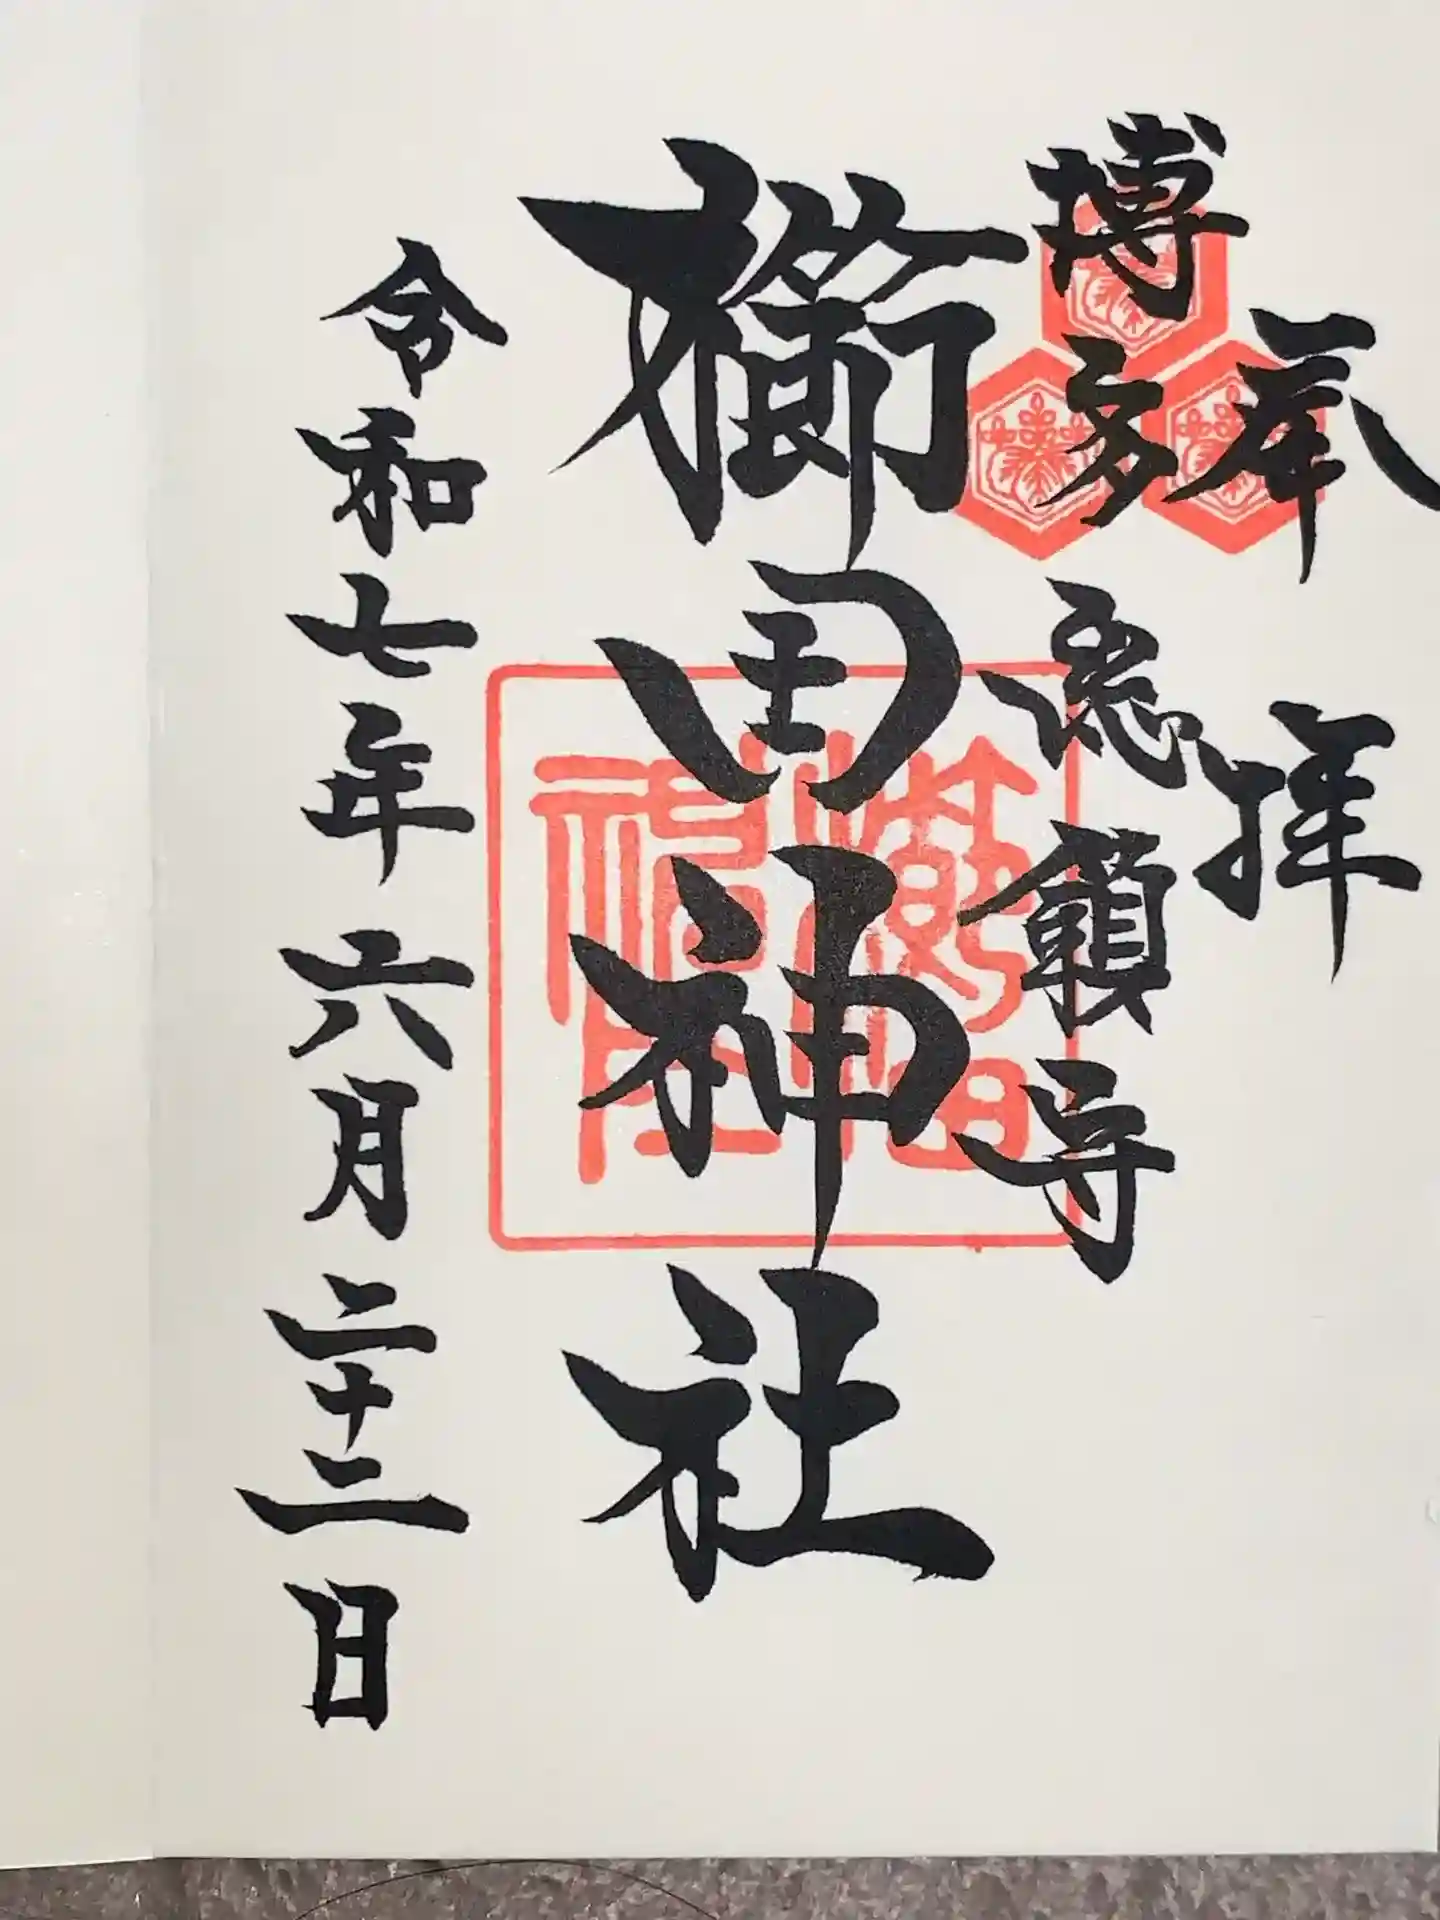 奉拝
博多総鎮守
櫛田神社
令和七年六月二十二日